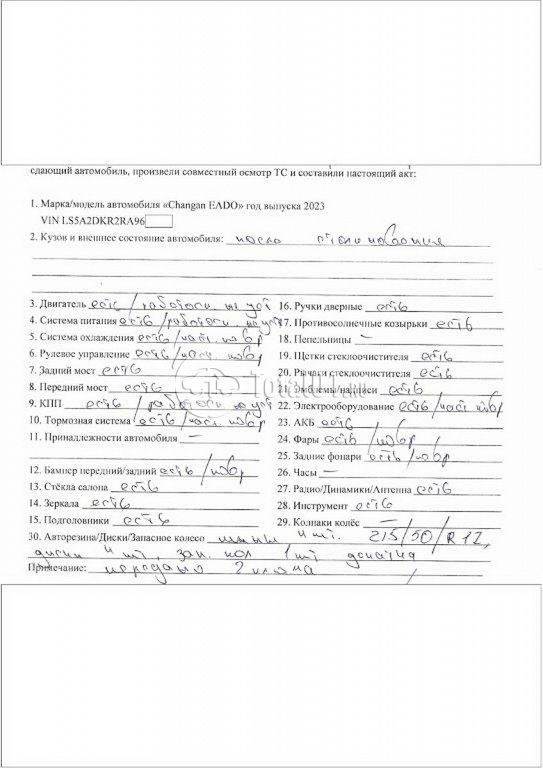 сдающий автомобиль, произвели совместный осмотр ТС и составили настоящий акт:
1. Марка/модель автомобиля «Changan EADO» год выпуска 2023
VIN LS5A2DKR2RA96
2. Кузов и внешнее состояние автомобиля: после столкновения
3. Двигатель есть / работоси. не уст 16. Ручки дверные есть
4. Система питания есть / работоси. не уст 17. Противосолнечные козырьки есть
5. Система охлаждения есть / част повр 18. Пепельницы —
6. Рулевое управление есть / част повр 19. Щетки стеклоочистителя есть
7. Задний мост есть 20. Рычаги стеклоочистителя есть
8. Передний мост есть 21. Эмблемы/надписи есть
9. КПП есть / работоси не уст 22. Электрооборудование есть / част повр
10. Тормозная система есть / част. повр 23. АКБ есть
11. Принадлежности автомобиля — 24. Фары есть / повр
25. Задние фонари есть / повр
12. Бампер передний/задний есть / повр 26. Часы —
13. Стёкла салона есть 27. Радио/Динамики/Антенна есть
14. Зеркала есть 28. Инструмент есть
15. Подголовники есть 29. Колпаки колёс —
30. Авторезина/Диски/Запасное колесо шины 4 шт. 215/50/R17,
диски 4 шт, зап. кол 1 шт докатка
Примечание: передано 2 ключа